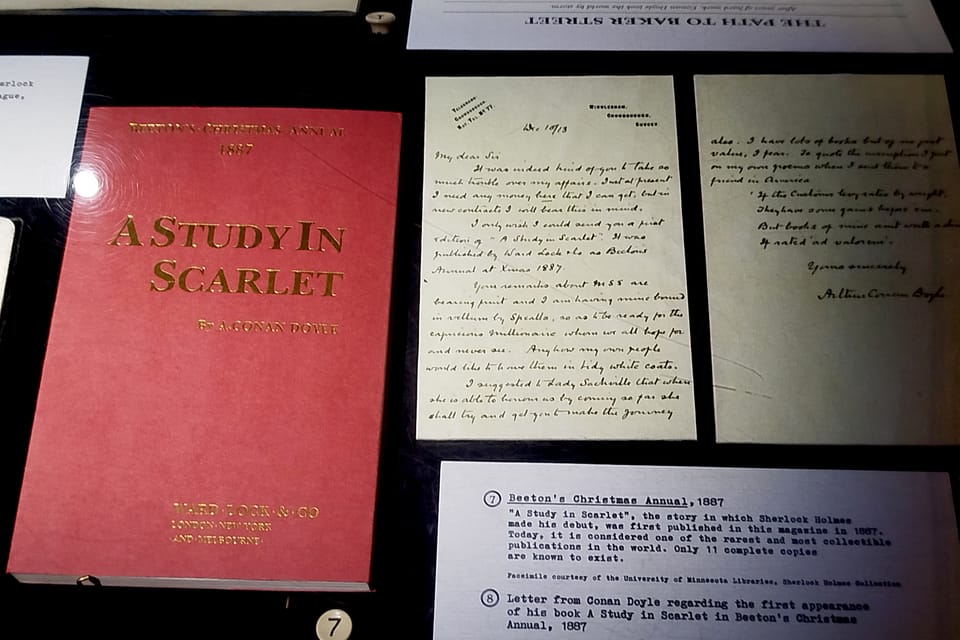 THE PATH TO BAKER STREET
After years of hard work, Conan Doyle took the world by storm
erlock
ague,
BEETON'S · CHRISTMAS · ANNUAL
1887
A STUDY IN
SCARLET
By A. CONAN DOYLE
WARD · LOCK · & · CO
LONDON · NEW YORK
· AND · MELBOURNE ·
7
TELEGRAMS.
CROWBOROUGH.
WINDLESHAM,
CROWBOROUGH,
SUSSEX
Dec 10/13
My dear Sir
It was indeed kind of you to take so
much trouble over my affairs. Just at present
I need any money here that I can get, but in
new contracts I will bear this in mind.
I only wish I could send you a first
edition of "A Study in Scarlet". It was
published by Ward Lock & Co as Beetons
Annual at Xmas 1887.
Your remarks about MSS are
bearing fruit and I am having mine bound
in vellum by Spealls, so as to be ready for the
capricious Millionaire whom we all hope for
and never see. Anyhow my own people
would like to have them in tidy white coats.
I suggested to Lady Sackville that when
she is able to honour us by coming so far she
shall try and get you to make the journey
also. I have lots of books but of no great
value, I fear. To quote the inscription I put
on my own poems when I sent them to a
friend in America
'If the Customs levy rates by weight,
They have some gains before 'em.
But books of mine aint worth a
If rated 'ad valorem'.
Yours sincerely
Arthur Conan Doyle
7 Beeton's Christmas Annual, 1887
"A Study in Scarlet", the story in which Sherlock Holmes
made his debut, was first published in this magazine in 1887.
Today, it is considered one of the rarest and most collectible
publications in the world. Only 11 complete copies
are known to exist.
Facsimile courtesy of the University of Minnesota Libraries, Sherlock Holmes Collection
8 Letter from Conan Doyle regarding the first appearance
of his book A Study in Scarlet in Beeton's Christmas
Annual, 1887